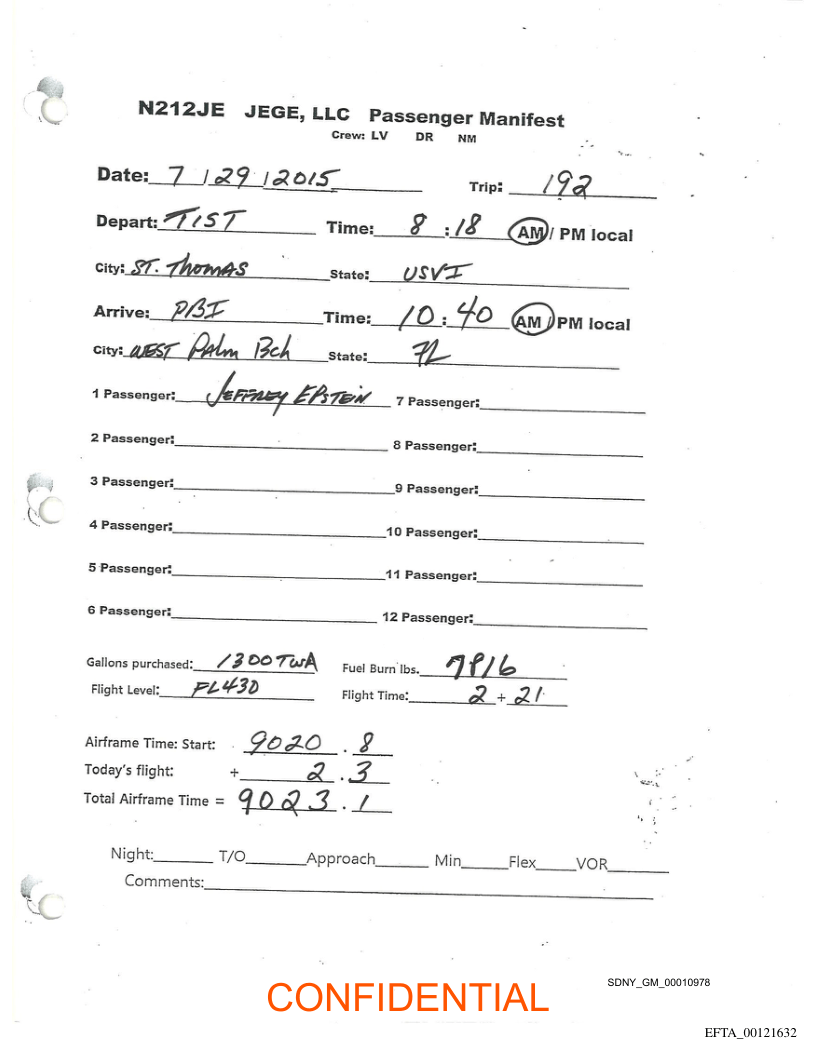 N212JE JEGE, LLC Passenger Manifest
Crew: LV DR NM
Date: 7 / 29 / 2015 Trip: 192
Depart: TIST Time: 8 : 18 AM / PM local
City: ST. Thomas State: USVI
Arrive: PBI Time: 10 : 40 AM / PM local
City: WEST PALM Bch State: FL
1 Passenger: JEFFREY EPSTEIN 7 Passenger:
2 Passenger: 8 Passenger:
3 Passenger: 9 Passenger:
4 Passenger: 10 Passenger:
5 Passenger: 11 Passenger:
6 Passenger: 12 Passenger:
Gallons purchased: 1300 TWA Fuel Burn lbs. 7916
Flight Level: FL430 Flight Time: 2 + 21
Airframe Time: Start: 9020 . 8
Today's flight: + 2 . 3
Total Airframe Time = 9023 . 1
Night: T/O Approach Min Flex VOR
Comments:
CONFIDENTIAL
SDNY_GM_00010978
EFTA_00121632